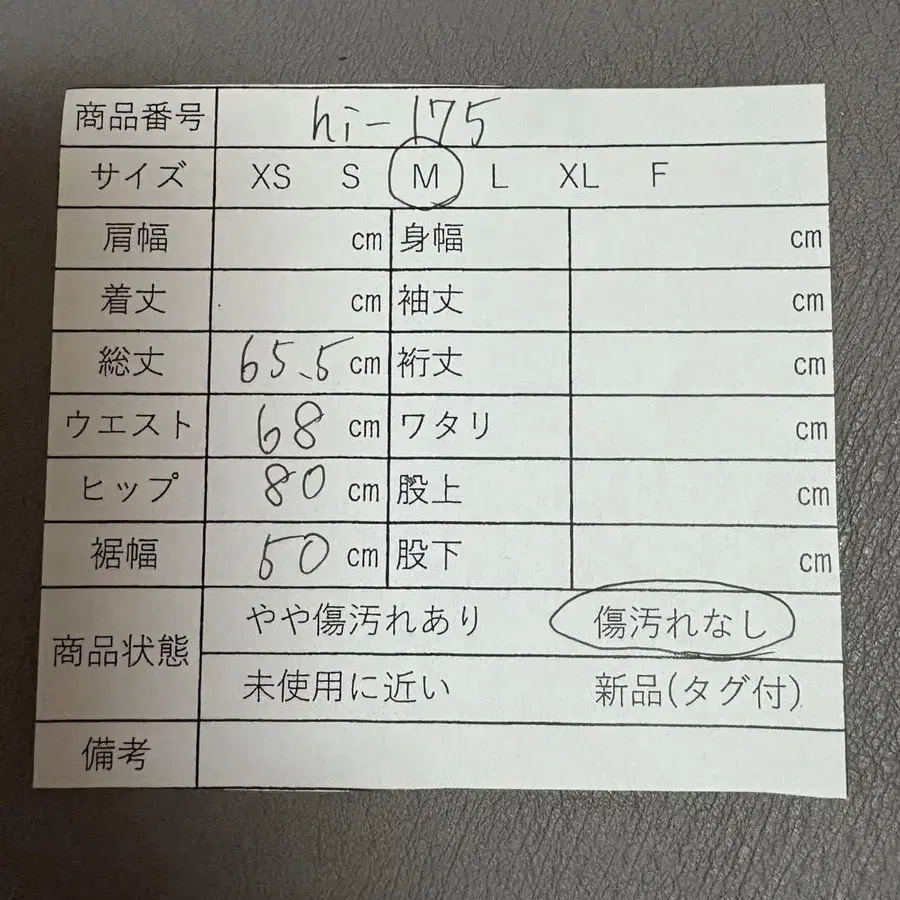 商品番号 hi-175
サイズ XS S M L XL F
肩幅 cm 身幅 cm
着丈 cm 袖丈 cm
総丈 65.5 cm 裄丈 cm
ウエスト 68 cm ワタリ cm
ヒップ 80 cm 股上 cm
裾幅 50 cm 股下 cm
商品状態 やや傷汚れあり 傷汚れなし
未使用に近い 新品(タグ付)
備考